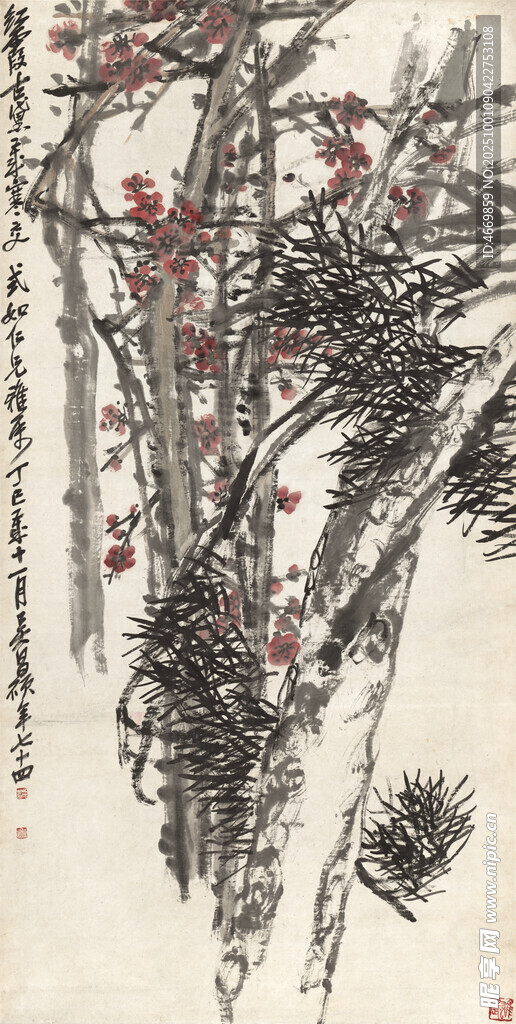 红霞古黛岁寒交 式如仁兄雅属 丁巳岁十一月吴昌硕年七十四
ID:4669859 NO:20251001090422753108
昵享网 www.nipic.cn